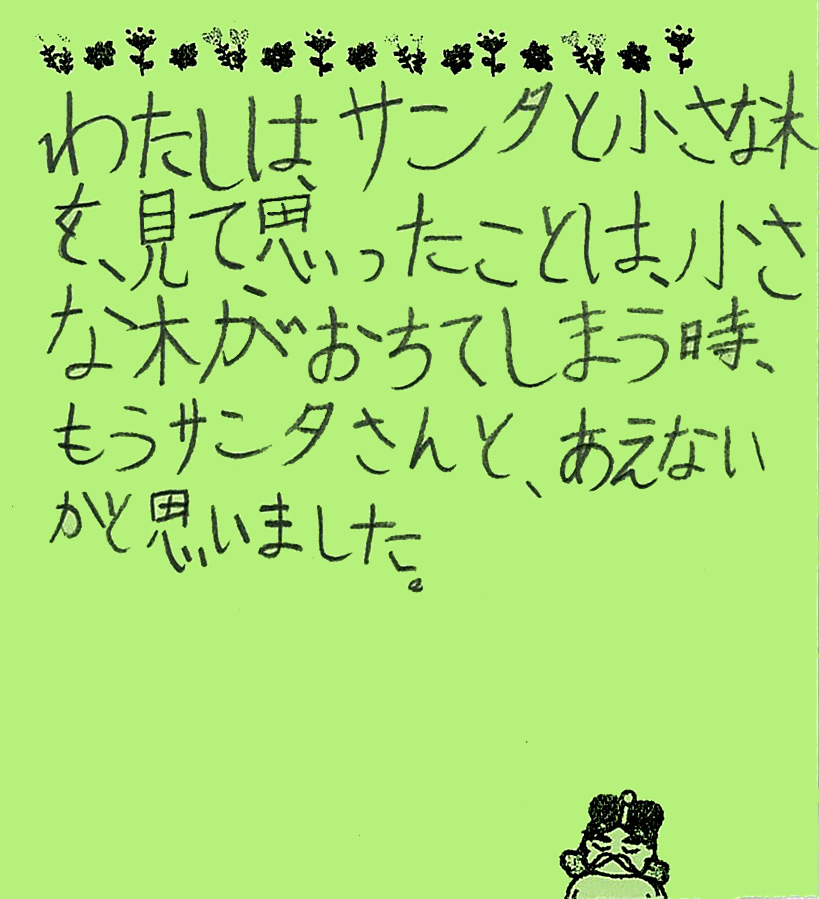 わたしは、サンタと小さな木
を、見て思ったことは、小さ
な木がおちてしまう時、
もうサンタさんと、あえない
かと思いました。